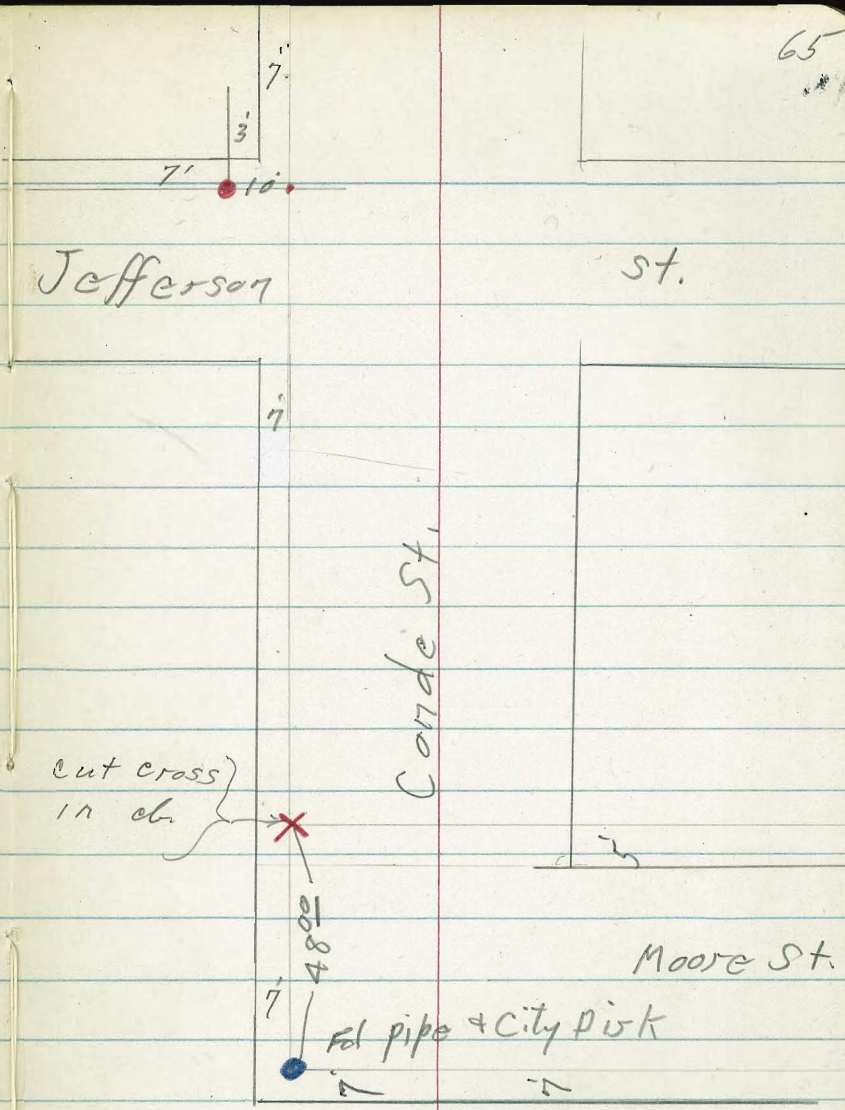 65
7'
3'
7' 10'
Jefferson St.
7'
Conde St.
cut cross
in cb.
5'
48 00
Moore St.
7'
Fd pipe & City Disk
7' 7'